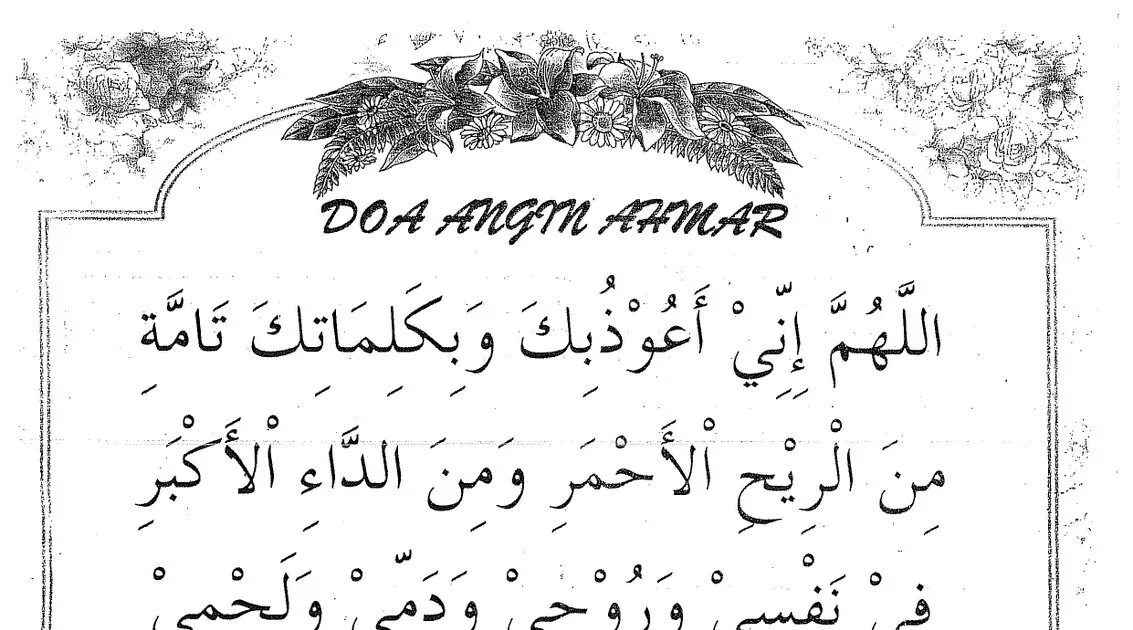 DOA ANGIN AHMAR
اللَّهُمَّ إِنِّيْ أَعُوْذُبِكَ وَبِكَلِمَاتِكَ تَامَّةِ
مِنَ الْرِيْحِ الْأَحْمَرِ وَمِنَ الدَّاءِ الْأَكْبَرِ
فِيْ نَفْسِيْ وَرُوْحِيْ وَدَمِّيْ وَلَحْمِيْ